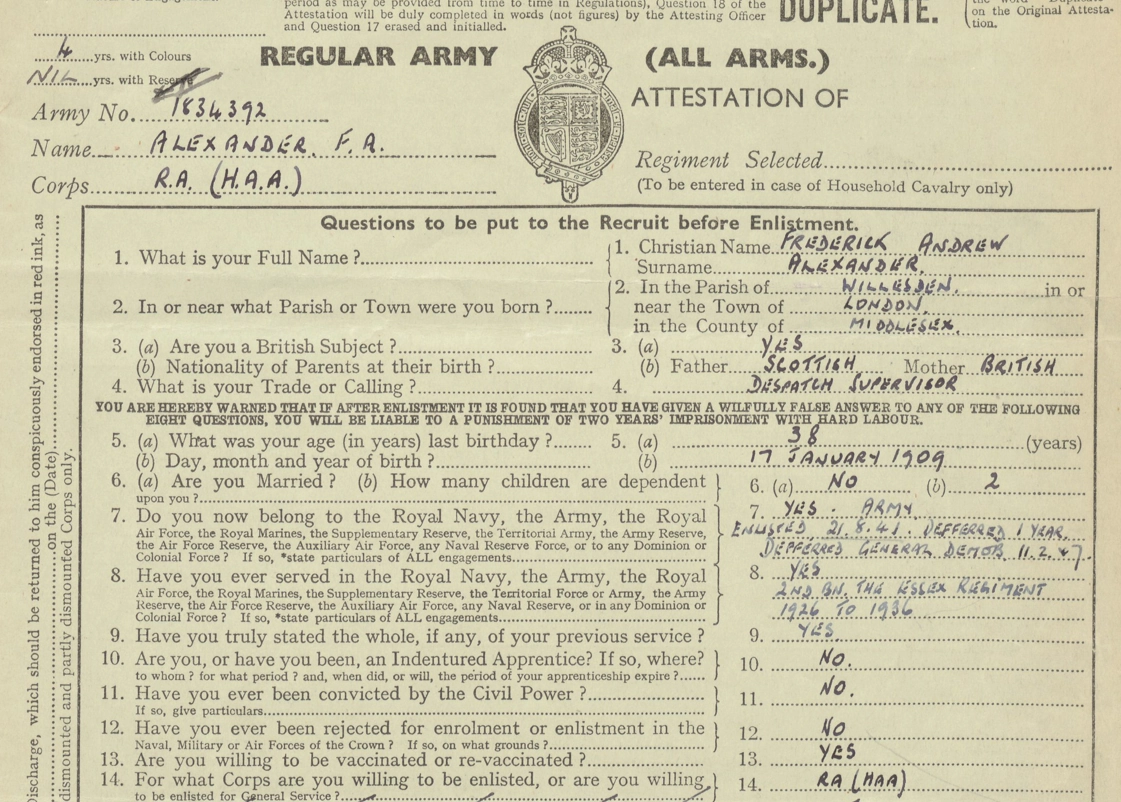 period as may be provided from time to time in Regulations), Question 18 of the
Attestation will be duly completed in words (not figures) by the Attesting Officer
and Question 17 erased and initialled.
DUPLICATE.
on the Original Attesta-
tion.
4 yrs. with Colours
NIL yrs. with Reserve
REGULAR ARMY (ALL ARMS.)
ATTESTATION OF
Army No. 1834392
Name ALEXANDER. F. A.
Corps R.A. (H.A.A.)
Regiment Selected
(To be entered in case of Household Cavalry only)
Discharge, which should be returned to him conspicuously endorsed in red ink, as
on the (Date)
dismounted and partly dismounted Corps only.
Questions to be put to the Recruit before Enlistment.
1. What is your Full Name ? 1. Christian Name FREDERICK ANDREW
Surname ALEXANDER.
2. In or near what Parish or Town were you born ? 2. In the Parish of WILLESDEN. in or
near the Town of LONDON.
in the County of MIDDLESEX.
3. (a) Are you a British Subject ? 3. (a) YES
(b) Nationality of Parents at their birth ? (b) Father SCOTTISH Mother BRITISH
4. What is your Trade or Calling ? 4. DESPATCH SUPERVISOR
YOU ARE HEREBY WARNED THAT IF AFTER ENLISTMENT IT IS FOUND THAT YOU HAVE GIVEN A WILFULLY FALSE ANSWER TO ANY OF THE FOLLOWING
EIGHT QUESTIONS, YOU WILL BE LIABLE TO A PUNISHMENT OF TWO YEARS' IMPRISONMENT WITH HARD LABOUR.
5. (a) What was your age (in years) last birthday ? 5. (a) 38 (years)
(b) Day, month and year of birth ? (b) 17 JANUARY 1909
6. (a) Are you Married ? (b) How many children are dependent
upon you ? 6. (a) NO (b) 2
7. Do you now belong to the Royal Navy, the Army, the Royal
Air Force, the Royal Marines, the Supplementary Reserve, the Territorial Army, the Army Reserve,
the Air Force Reserve, the Auxiliary Air Force, any Naval Reserve Force, or to any Dominion or
Colonial Force ? If so, *state particulars of ALL engagements
7. YES. ARMY
ENLISTED 21.8.41. DEFFERRED 1 YEAR.
DEFFERRED GENERAL DEMOB 11.2.47
8. Have you ever served in the Royal Navy, the Army, the Royal
Air Force, the Royal Marines, the Supplementary Reserve, the Territorial Force or Army, the Army
Reserve, the Air Force Reserve, the Auxiliary Air Force, any Naval Reserve, or in any Dominion or
Colonial Force ? If so, *state particulars of ALL engagements
8. YES
2ND BN. THE ESSEX REGIMENT
1926 TO 1936
9. Have you truly stated the whole, if any, of your previous service ? 9. YES
10. Are you, or have you been, an Indentured Apprentice? If so, where?
to whom ? for what period ? and, when did, or will, the period of your apprenticeship expire ? 10. NO.
11. Have you ever been convicted by the Civil Power ?
If so, give particulars 11. NO.
12. Have you ever been rejected for enrolment or enlistment in the
Naval, Military or Air Forces of the Crown ? If so, on what grounds ? 12. NO
13. Are you willing to be vaccinated or re-vaccinated ? 13. YES
14. For what Corps are you willing to be enlisted, or are you willing
to be enlisted for General Service ? 14. RA (HAA)